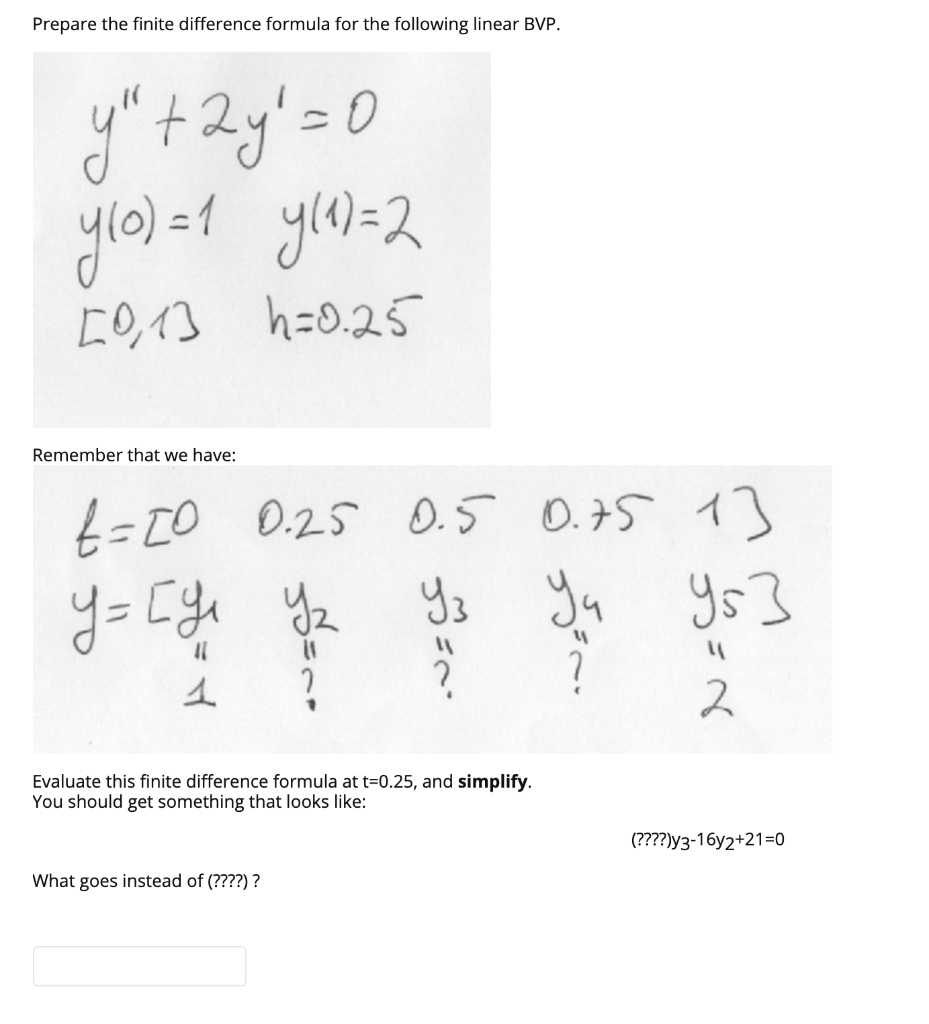 Prepare the finite difference formula for the following linear BVP.
y" + 2y' = 0
y(0) = 1 y(1) = 2
[0,1] h=0.25
Remember that we have:
t = [0 0.25 0.5 0.75 1]
y = [y₁ y₂ y₃ y₄ y₅]
" " " " "
1 ? ? ? 2
Evaluate this finite difference formula at t=0.25, and simplify.
You should get something that looks like:
(????)y₃-16y₂+21=0
What goes instead of (????) ?